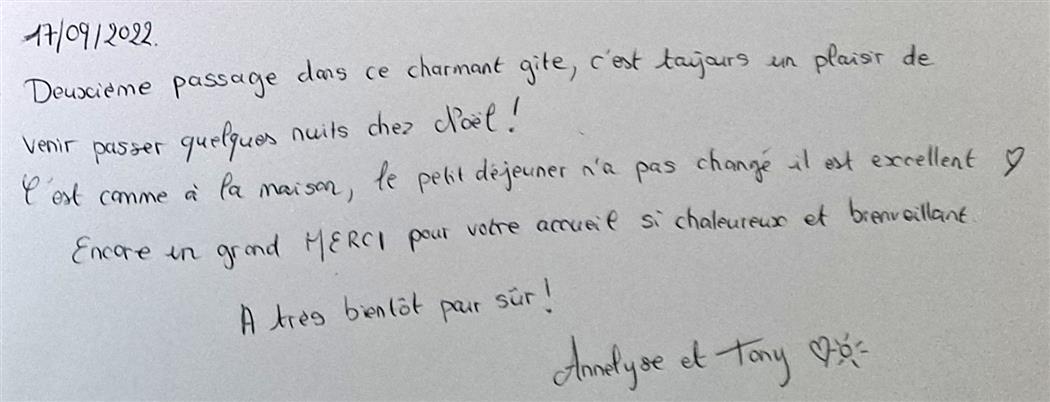 17/09/2022.
Deuxième passage dans ce charmant gite, c'est toujours un plaisir de
venir passer quelques nuits chez Noël !
C'est comme à la maison, le petit déjeuner n'a pas changé il est excellent ♡
Encore un grand MERCI pour votre accueil si chaleureux et bienveillant.
A très bientôt pour sûr !
Annelyse et Tony ♡☼